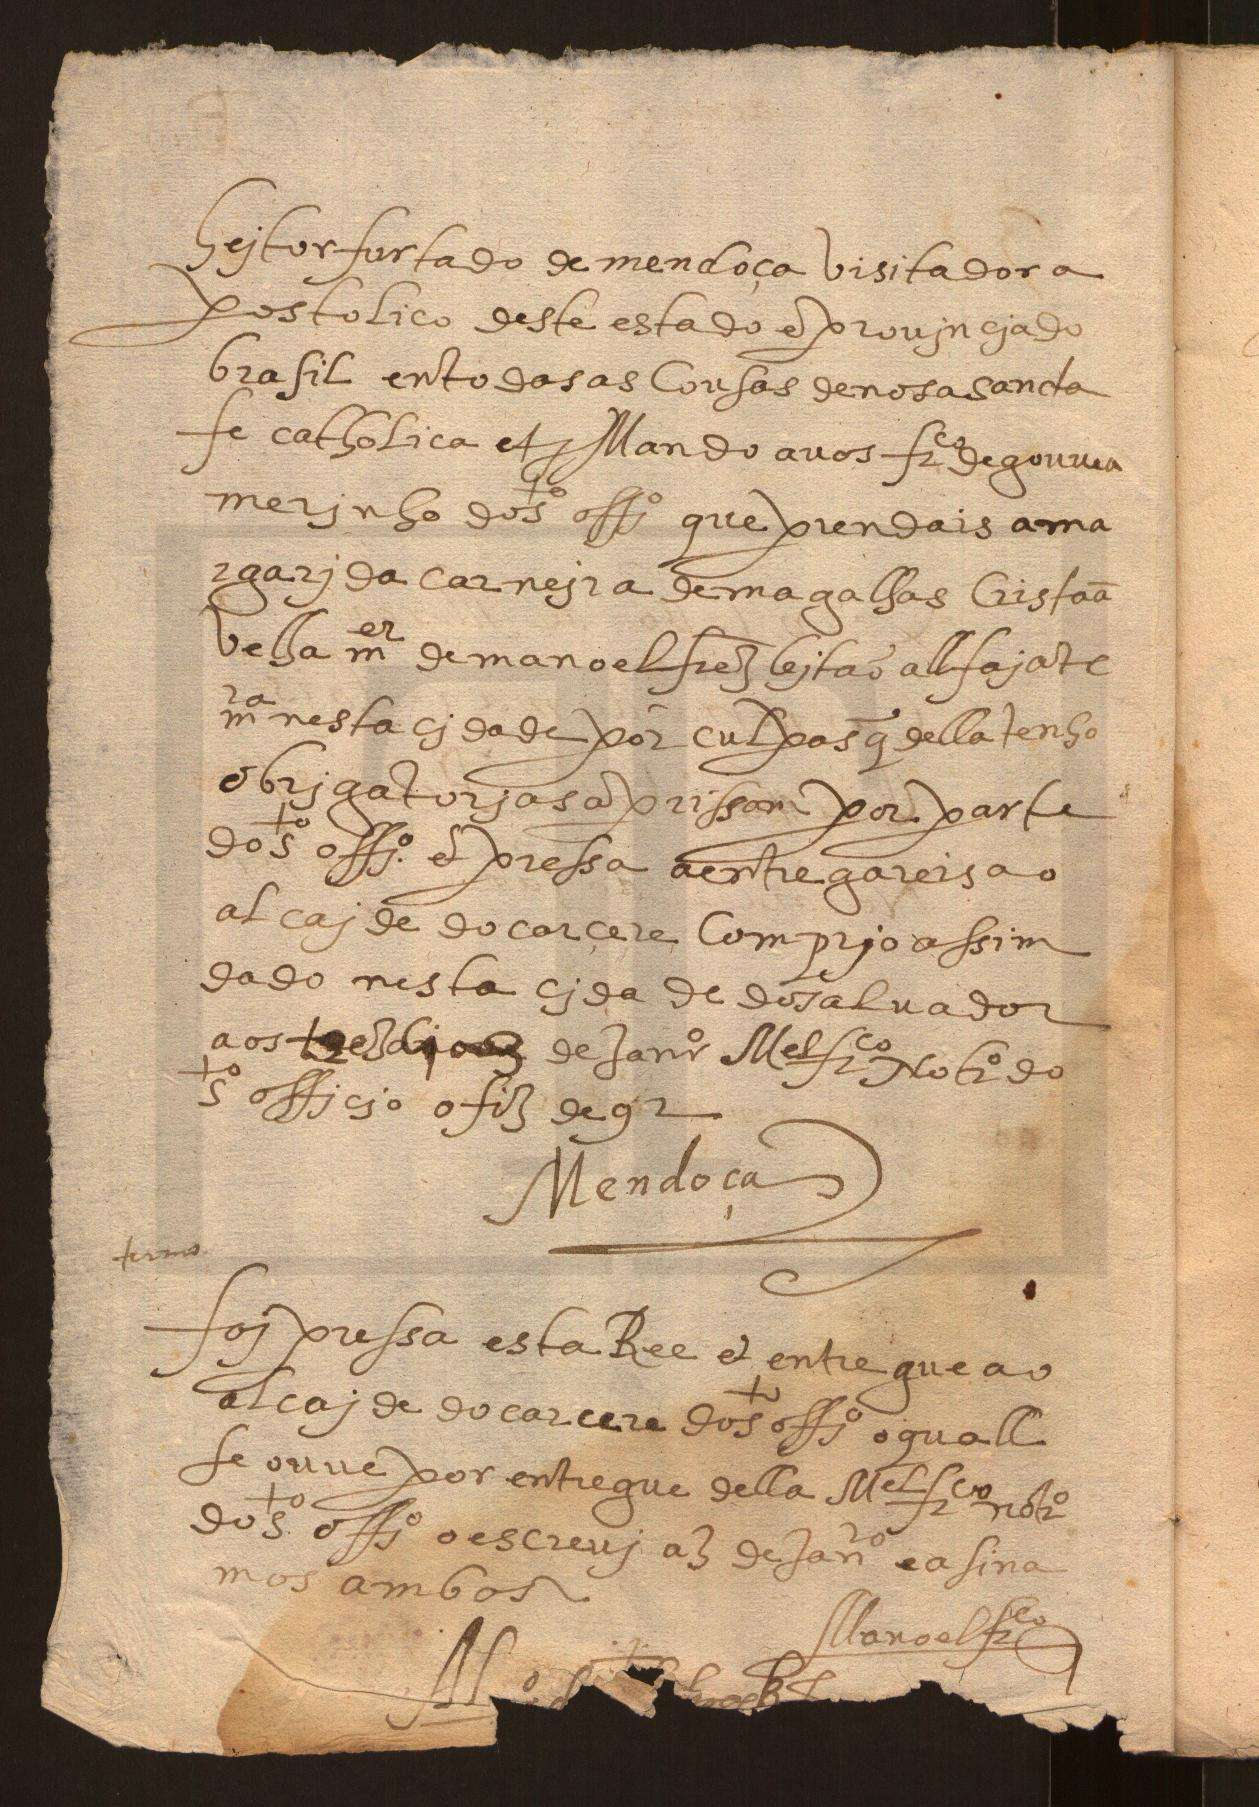 hejtor furtado de mendoça visitador a
postolico deste estado e provjncja do
brasil em todas as cousas de nosa sancta
fe catholica etc Mando a vos frco de gouvea
merjnho do sto offjo que prendais a ma
rgarjda carnejra de magalhas cristãa
velha mer de manoel frez lejtaõ allfajate
mra nesta cjdade por culpas q̃ della tenho
obrjgatorjas a prissam por parte
do sto offjo e pressa a entregareis ao
alcajde do carcere comprjo assim
dado nesta cjdade do salvador
aos de Janro Mel frco Notro do
sto officjo o fiz de 92
Mendoça
termo
foj pressa esta Ree e entregue ao
alcajde do carcere do sto offjo o quall
se ouve por entregue della Mel frco notro
do sto offjo o escrevj a 3 de Janro e asina
mos ambos
Manoel frco